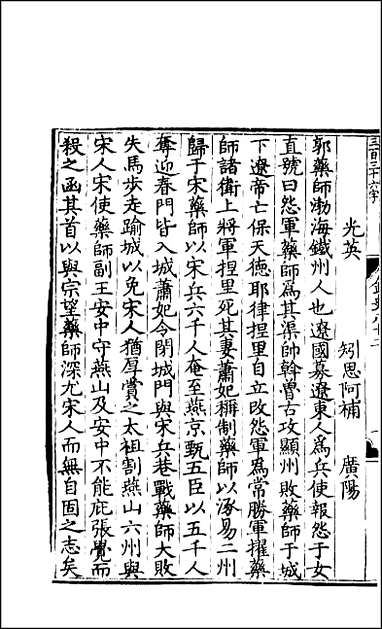 三百三十六字
光英　矧思阿補　廣陽
郭藥師渤海鐵州人也遼國募遼東人爲兵使報怨于女
直號曰怨軍藥師爲其渠帥斡魯古攻顯州敗藥師于城
下遼帝亡保天德耶律揑里自立改怨軍爲常勝軍擢藥
師諸衛上將軍揑里死其妻蕭妃稱制藥師以涿易二州
歸于宋藥師以宋兵六千人奄至燕京甄五臣以五千人
奪迎春門皆入城蕭妃令閉城門與宋兵巷戰藥師大敗
失馬步走踰城以免宋人猶厚賞之太祖割燕山六州與
宋人宋使藥師副王安中守燕山及安中不能庇張覺而
殺之函其首以與宗望藥師深尤宋人而無自固之志矣